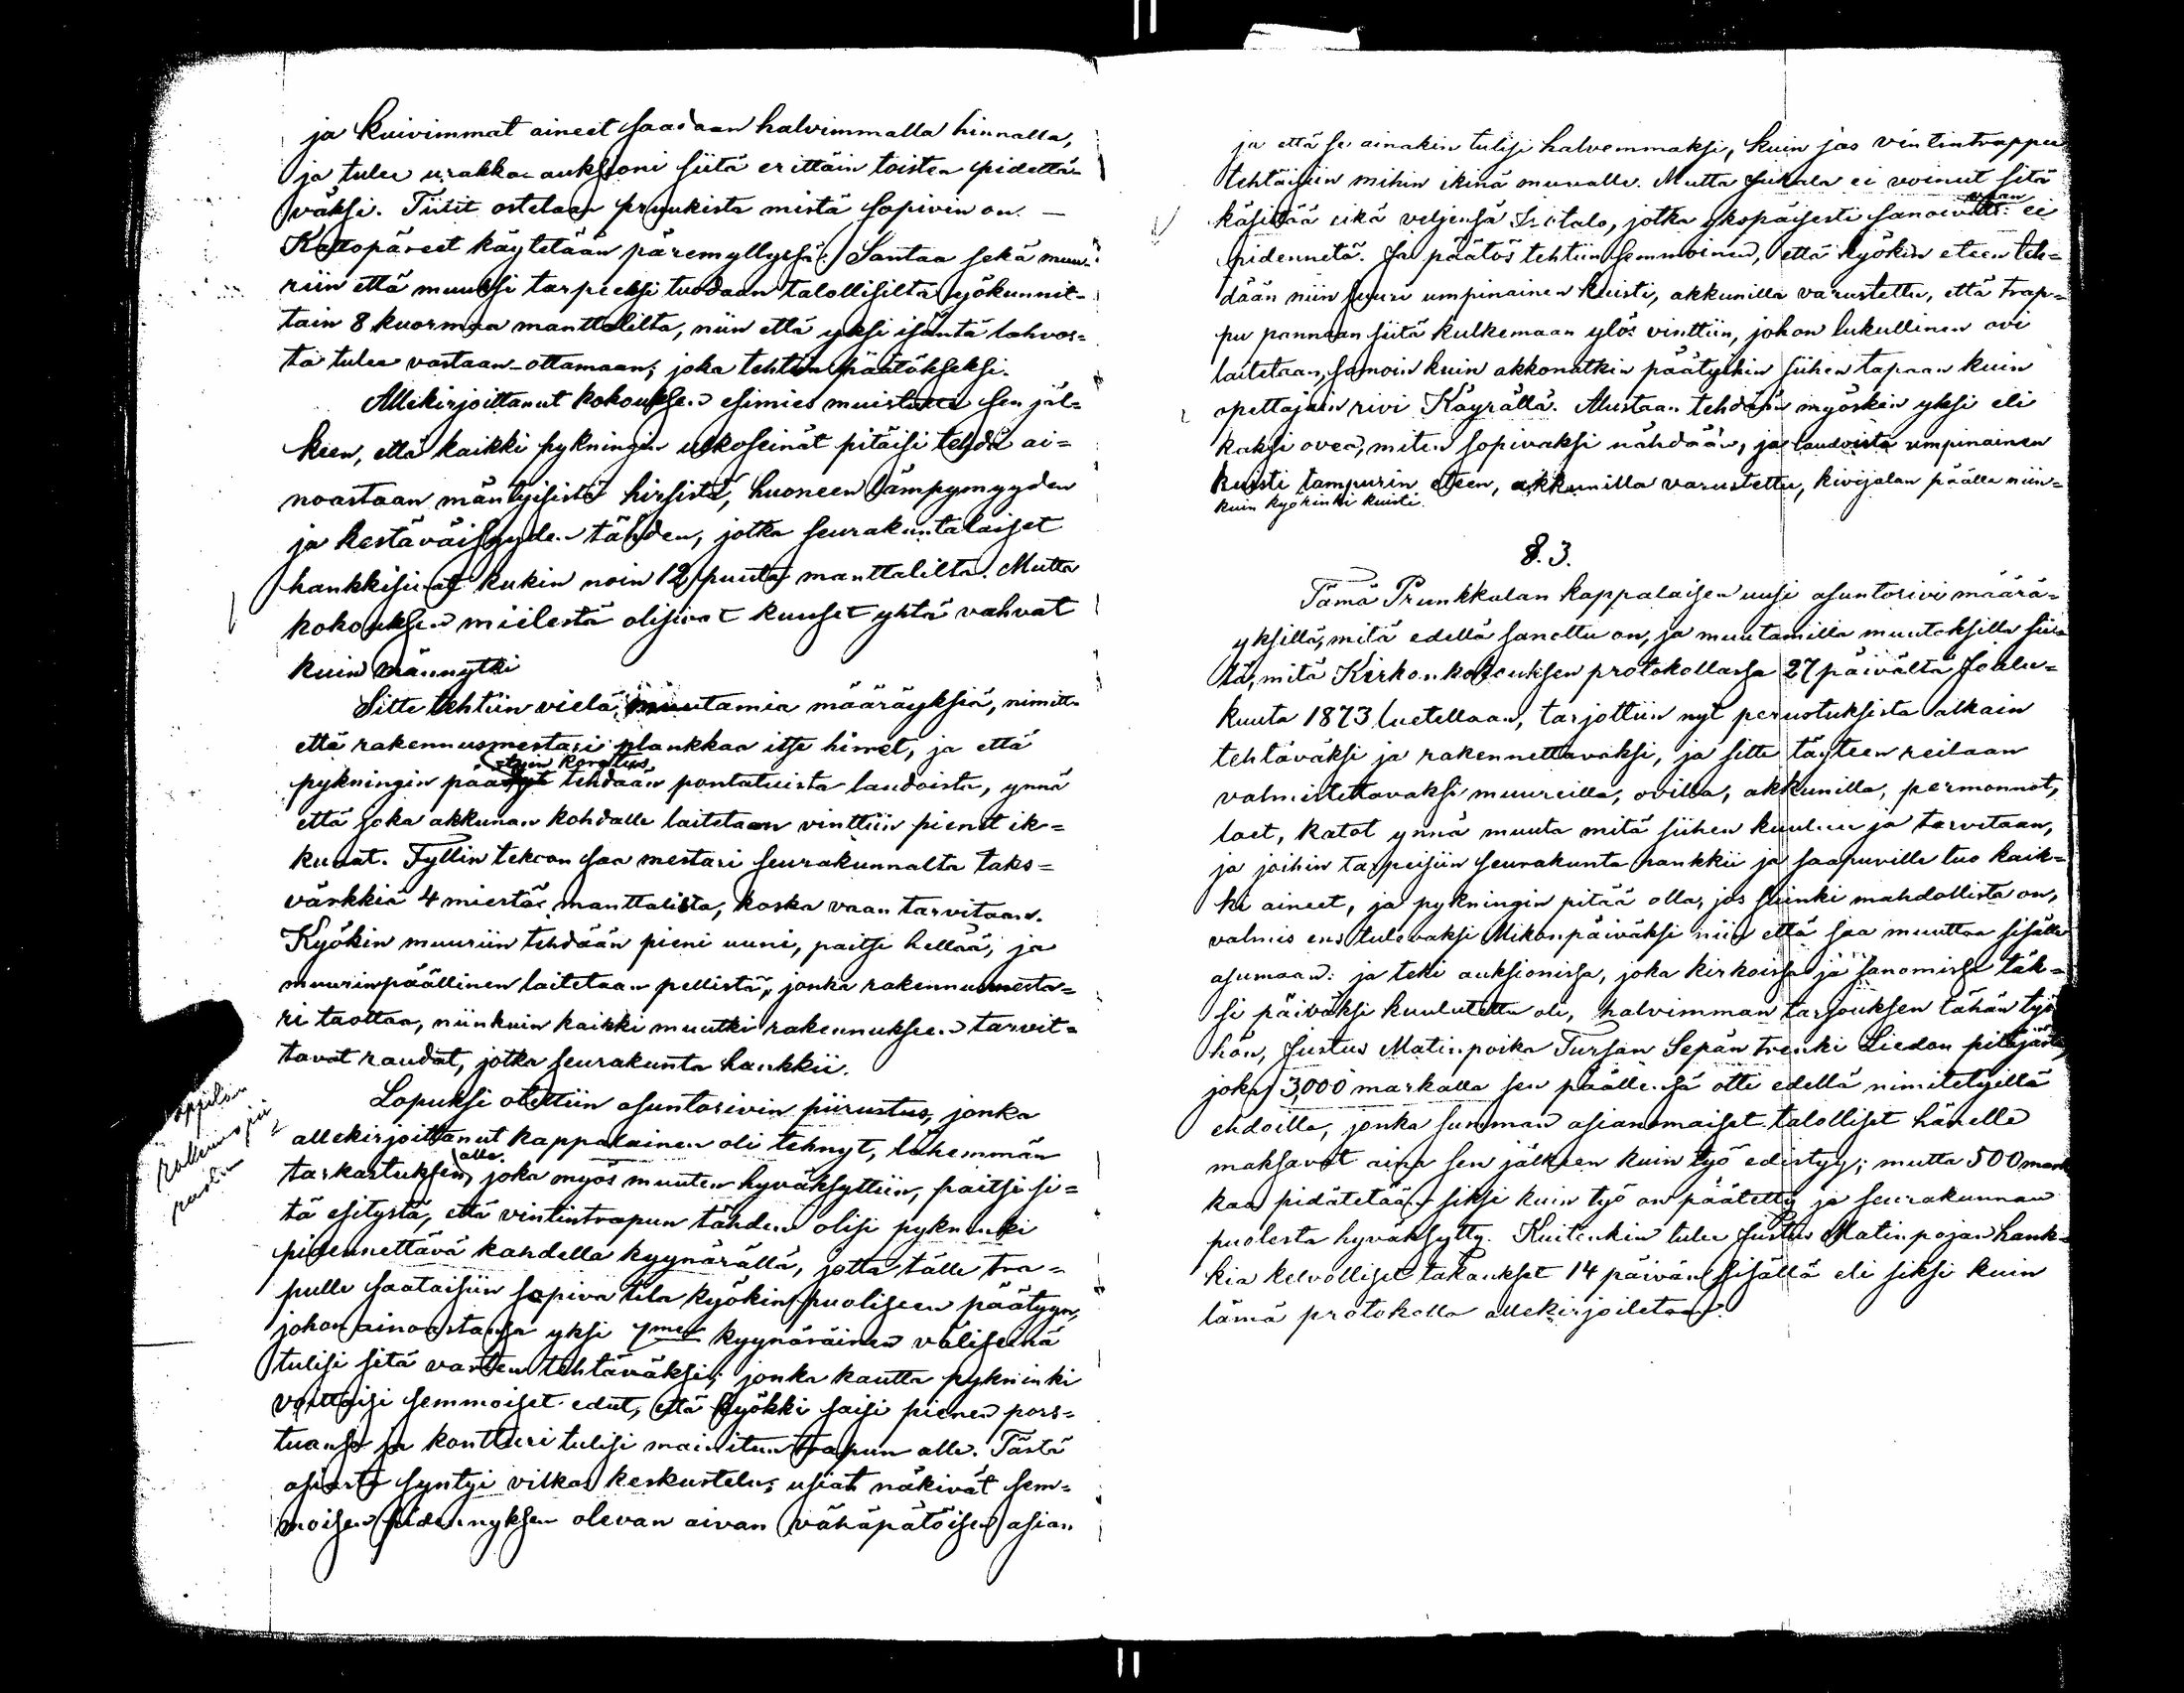 ja kuivimmat aineet saadaan halvimmalla hinnalla,
ja tulee urakka-auksioni siitä erittäin toisten pidettä-
väksi. Tiilit ostetaan pruukista mistä sopivin on. —
Kattopäreet käytetään päremyllyssä. Santaa sekä muu-
riin että muuksi tarpeeksi tuodaan talollisilta yökunnit-
tain 8 kuormaa manttalilta, niin että yksi isäntä lahvos-
ta tulee vastaan-ottamaan; joka tehtiin päätökseksi.
Allekirjoittanut kokouksen esimies muistutti sen jäl-
keen, että kaikki pykningin ulkoseinät pitäisi tehdä ai-
noastaan mäntyisistä hirsistä, huoneen lämpymyyden
ja kestäväisyyden tähden, jotka seurakuntalaiset
hankkisivat kukin noin 12 puuta manttalilta. Mutta
kokouksen mielestä olisivat kuuset yhtä vahvat
kuin männytki
Sitte tehtiin vielä muutamia määräyksiä, nimitt.
että rakennusmestari plankkaa itse hirret, ja että
tyin korotus
pykningin päädyt tehdään pontatuista laudoista, ynnä
että joka akkunan kohdalle laitetaan vinttiin pienet ik-
kunat. Fyllin tekoon saa mestari seurakunnalta taks-
värkkiä 4 miestä manttalista, koska vaan tarvitaan.
Kyökin muuriin tehdään pieni uuni, paitsi hellää, ja
muurinpäällinen laitetaan pellistä, jonka rakennusmesta-
ri taottaa, niinkuin kaikki muutki rakennukseen tarvit-
tavat raudat, jotka seurakunta hankkii.
Lopuksi otettiin asuntorivin piirustus, jonka
allekirjoittanut kappalainen oli tehnyt, lähemmän
tarkastuksen alle, joka myös muuten hyväksyttiin, paitsi si-
tä esitystä, että vintintrapun tähden olisi pykninki
pidennettävä kahdella kyynärällä, jotta tälle tra-
pulle saataisiin sopiva tila kyökin puoliseen päätyyn,
johon ainoastansa yksi 7men kyynäräinen väliseinä
tulisi sitä varten tehtäväksi; jonka kautta pykninki
voittaisi semmoiset edut, että kyökki saisi pienen pors-
tuansa ja konttuuri tulisi mainitun trapun alle. Tästä
asiasta syntyi vilkas keskustelu; usiat näkivät sem-
moisen pidennyksen olevan aivan vähäpätöisen asian
ja että se ainakin tulisi halvemmaksi, kuin jos vintintrappu
tehtäisiin mihin ikinä muualle. Mutta Jukala ei voinut sitä
käsittää eikä veljensä Isotalo, jotka ykspäisesti sanoivat: ei
pidennetä. Ja päätös tehtiin semmoinen, että kyökin eteen teh-
dään niin suuri umpinainen kuisti, akkunilla varustettu, että trap-
pu pannaan siitä kulkemaan ylös vinttiin, johon lukullinen ovi
laitetaan, samoin kuin akkonatkin päätyihin siihen tapaan kuin
opettajain rivi Käyrällä. Mustaan tehdään myöskin yksi eli
kaksi ovea, miten sopivaksi nähdään, ja laudoista umpinainen
kuisti tampurin eteen, akkunilla varustettu, kivijalan päälle niin-
kuin kyökinki kuisti.
§.3.
Tämä Prunkkalan kappalaisen uusi asuntorivi määrä-
yksillä, mitä edellä sanottu on, ja muutamilla muutoksilla sii-
tä, mitä Kirkonkokouksen protokollassa 27 päivältä Joulu-
kuuta 1873 luetellaan, tarjottiin nyt perustuksista alkain
tehtäväksi ja rakennettavaksi, ja sitte täyteen reilaan
valmistettavaksi muureilla, ovilla, akkunilla, permannot,
laet, katot ynnä muuta mitä siihen kuuluu ja tarvitaan,
ja joihin tarpeisiin seurakunta hankkii ja saapuville tuo kaik-
ki aineet, ja pykningin pitää olla, jos suinki mahdollista on,
valmis ens tulevaksi Mikonpäiväksi niin että saa muuttaa sisälle
asumaan: ja teki auksionissa, joka kirkoissa ja sanomissa täk-
si päiväksi kuulutettu oli, halvimman tarjouksen tähän työ
hön, Justus Matinpoika Tursan Sepän trenki Liedon pitäjästä,
joka 3,000 markalla sen päällensä otti edellä nimitetyillä
ehdoilla, jonka summan asianomaiset talolliset hänelle
maksavat aina sen jälkeen kuin työ edistyy; mutta 500 mark
kaa pidätetään siksi kuin työ on päätetty ja seurakunnan
puolesta hyväksytty. Kuitenkin tulee Justus Matinpojan hank-
kia kelvolliset takaukset 14 päivän sisällä eli siksi kuin
tämä protokolla allekirjoitetaan.